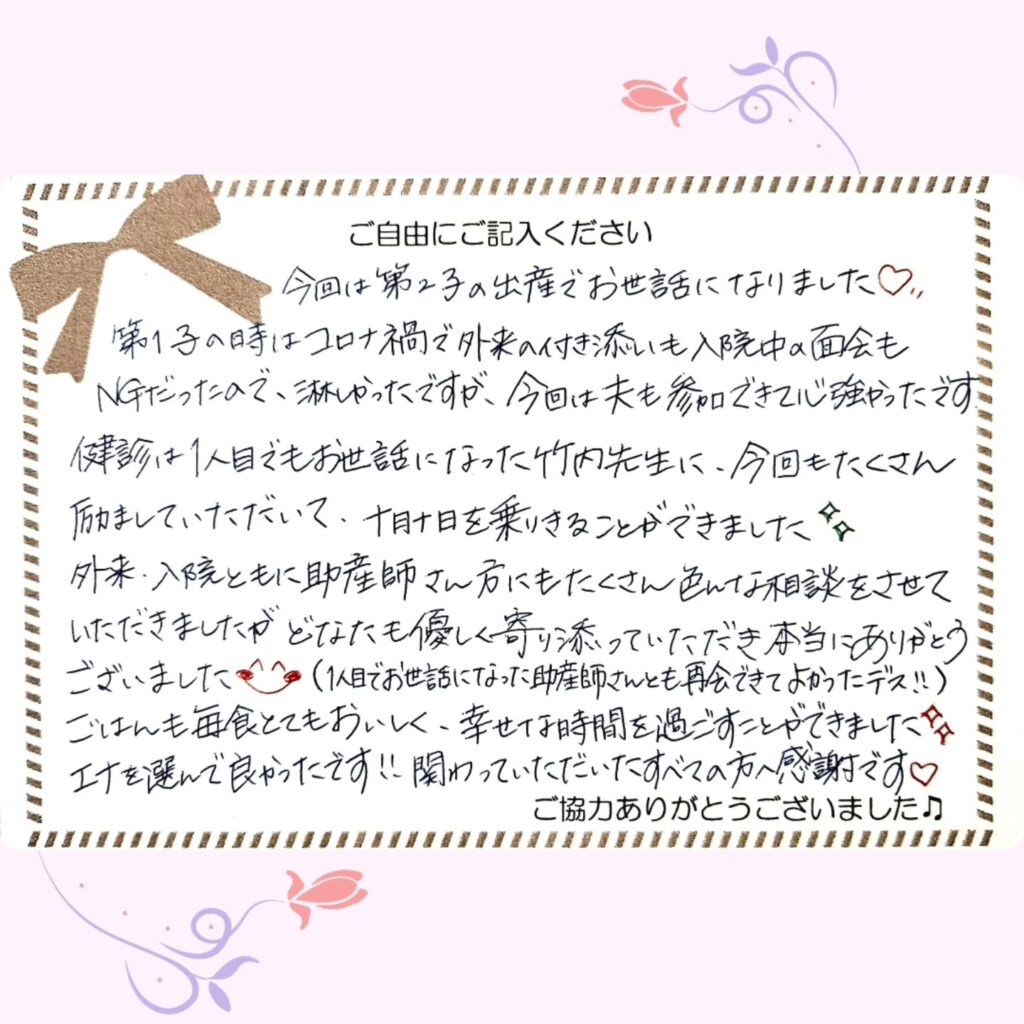 ご自由にご記入ください
今回は第2子の出産でお世話になりました♡
第1子の時はコロナ禍で外来の付き添いも入院中の面会も
NGだったので、淋しかったですが、今回は夫も参加できて心強かったです
健診は1人目でもお世話になった竹内先生に、今回もたくさん
励ましていただいて、十月十日を乗りきることができました
外来・入院ともに助産師さん方にもたくさん色んな相談をさせて
いただきましたがどなたも優しく寄り添っていただき本当にありがとう
ございました(1人目でお世話になった助産師さんとも再会できてよかったデス!!)
ごはんも毎食とてもおいしく、幸せな時間を過ごすことができました
エナを選んで良かったです!! 関わっていただいたすべての方へ感謝です♡
ご協力ありがとうございました♫